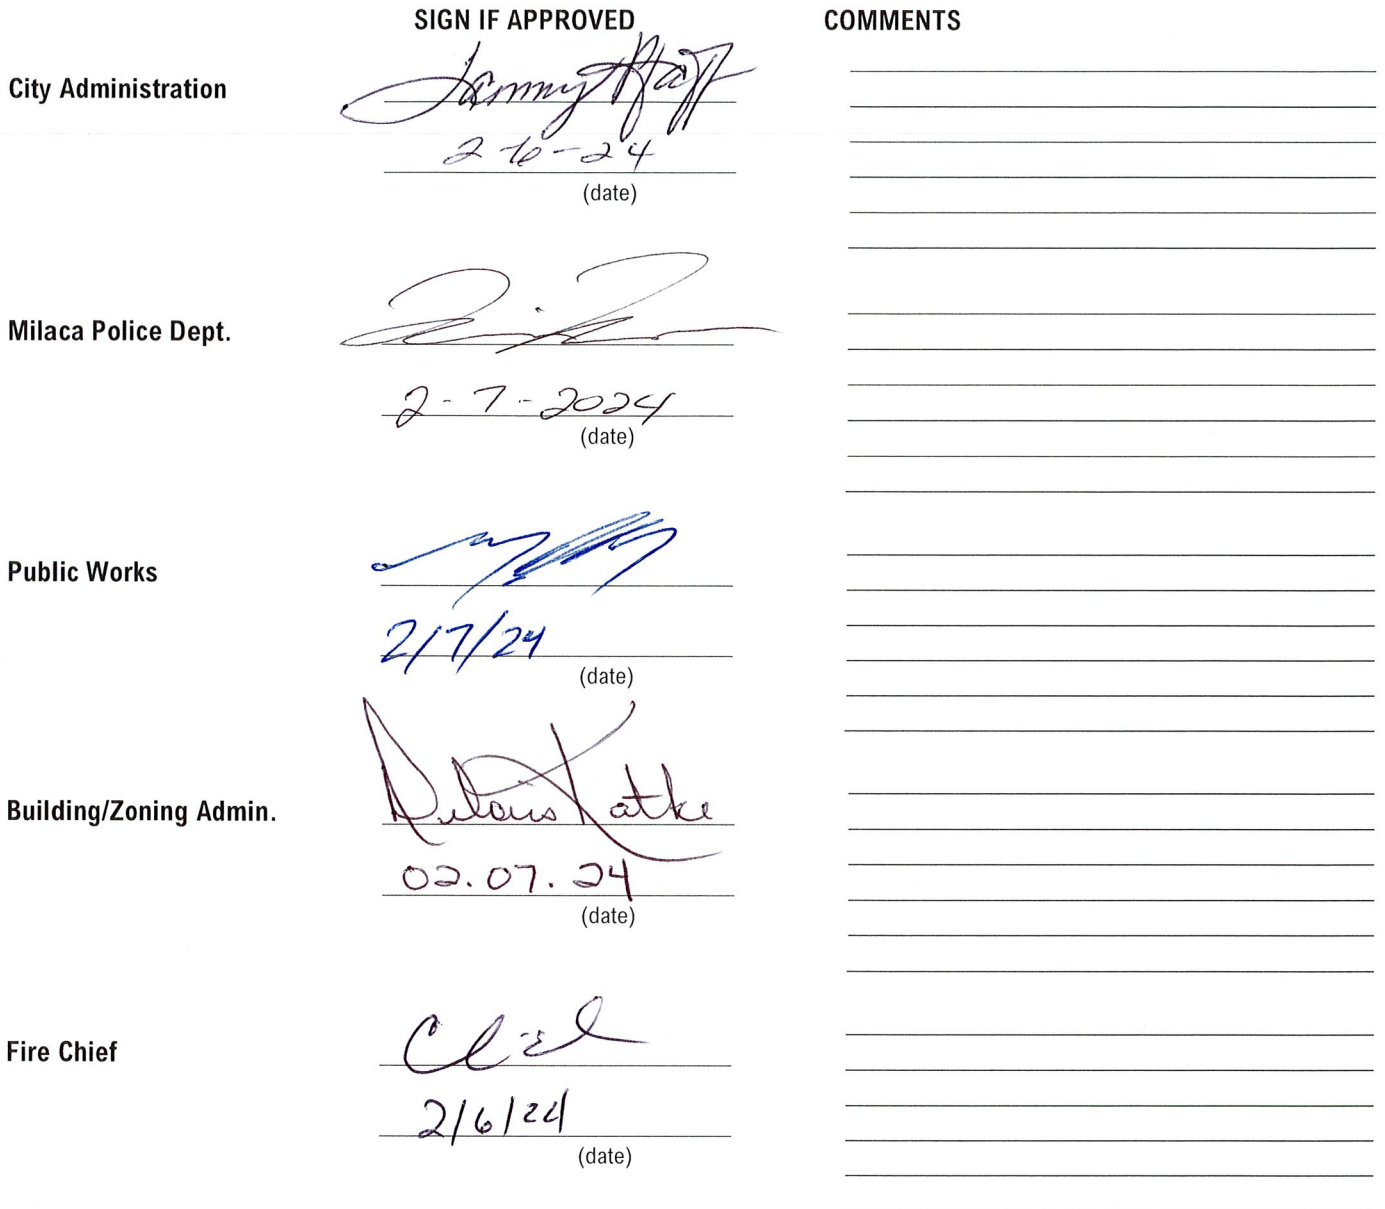 SIGN IF APPROVED COMMENTS
City Administration
Tammy Pfaff
2-6-24
(date)
Milaca Police Dept.
2-7-2024
(date)
Public Works
2/7/24
(date)
Building/Zoning Admin.
02.07.24
(date)
Fire Chief
2/6/24
(date)